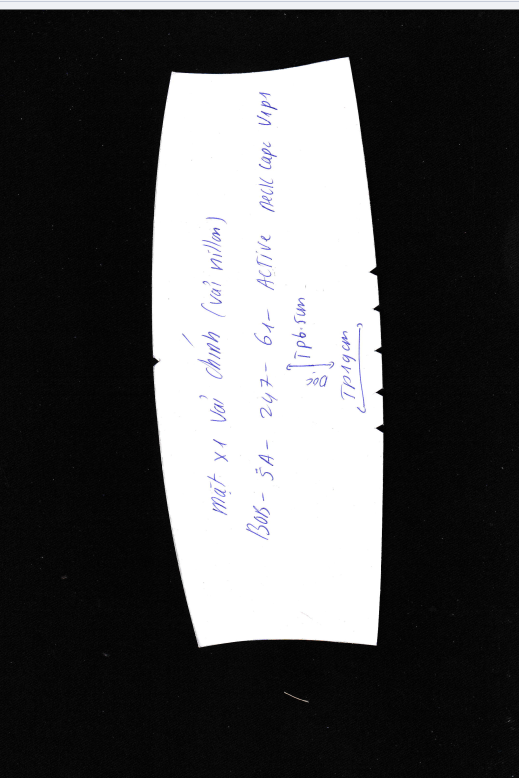 Mặt x1 vải chính (vải nillon)
BOB - SA - 247 - 61 - ACTIVE neck cape VIP1
Dọc TP6.5cm
TP19cm